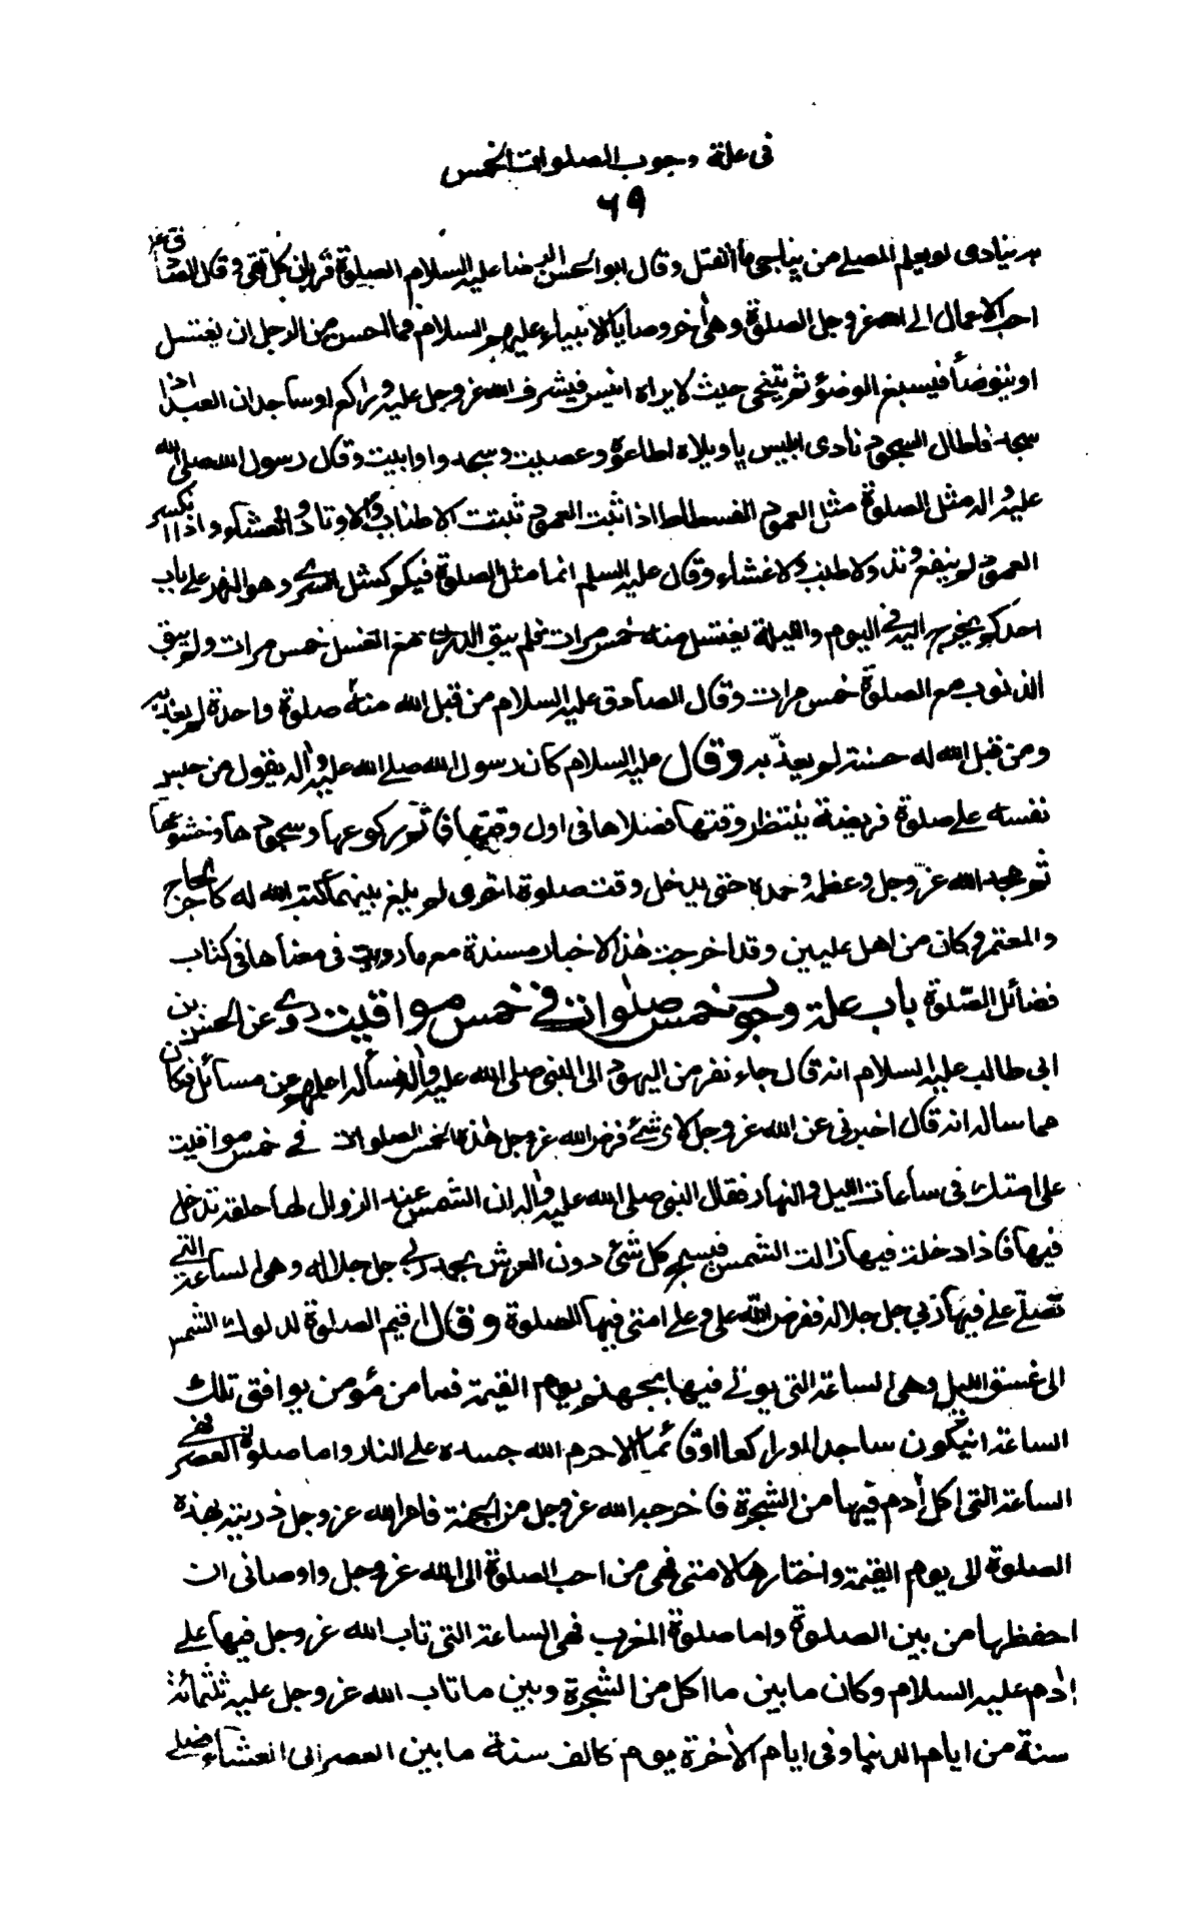 فى علة وجوب الصلوات الخمس
٦٩
به ينادى لو يعلم المصلى من يناجى ما انفتل وقال ابو الحسن الرضا عليه السلام الصلوة قربان كل تقى وقال الصادق ع
احب الاعمال الى الله عز وجل الصلوة وهى اخر وصايا الانبياء عليهم السلام فما احسن من الرجل ان يغتسل
او يتوضأ فيسبغ الوضوء ثم يتنحى حيث لا يراه انيس فيشرف الله عز وجل عليه وهو راكع او ساجد ان العبد اذا
سجد فاطال السجود نادى ابليس يا ويلاه اطاعوا وعصيت وسجدوا وابيت وقال رسول الله صلى الله
عليه واله مثل الصلوة مثل العمود الفسطاط اذا ثبت العمود ثبتت الاطناب والاوتاد والغشاء واذا انكسر
العمود لم ينفع وتد ولا طنب ولا غشاء وقال عليه السلم انما مثل الصلوة فيكم كمثل السرى وهو النهر على باب
احدكم يخرج اليه فى اليوم والليلة يغتسل منه خمس مرات فلم يبق الدرن مع الغسل خمس مرات ولم يبق
الذنوب مع الصلوة خمس مرات وقال الصادق عليه السلام من قبل الله منه صلوة واحدة لم يعذبه
ومن قبل الله له حسنة لم يعذبه وقال عليه السلام كان رسول الله صلى الله عليه واله يقول من حبس
نفسه على صلوة فريضة ينتظر وقتها فصلاها فى اول وقتها فاتم ركوعها وسجودها وخشوعها
ثم مجد الله عز وجل وعظمه وحمده حتى يدخل وقت صلوة اخرى لم يلغ بينهما كتب الله له كاجر الحاج
والمعتمر وكان من اهل عليين وقد اخرجت هذه الاخبار مسندة مع ما رويت فى معناها فى كتاب
فضائل الصلوة باب علة وجوب خمس صلوات فى خمس مواقيت روى عن الحسن بن
ابى طالب عليه السلام انه قال جاء نفر من اليهود الى النبى صلى الله عليه واله فسأله اعلمهم عن مسائل فكان
مما ساله انه قال اخبرنى عن الله عز وجل لاى شئ فرض الله عز وجل هذه الخمس الصلوات فى خمس مواقيت
على امتك فى ساعات الليل والنهار فقال النبى صلى الله عليه واله ان الشمس عند الزوال لها حلقة تدخل
فيها فاذا دخلت فيها زالت الشمس فيسبح كل شئ دون العرش بحمد ربى جل جلاله وهى الساعة التى
تصلى على فيها ربى جل جلاله ففرض الله على وعلى امتى فيها الصلوة وقال اقم الصلوة لدلوك الشمس
الى غسق الليل وهى الساعة التى يوتى فيها بجهنم يوم القيمة فما من مؤمن يوافق تلك
الساعة ان يكون ساجدا او راكعا او قائما الا حرم الله جسده على النار واما صلوة العصر فهى
الساعة التى اكل ادم فيها من الشجرة فاخرجه الله عز وجل من الجنة فامر الله عز وجل ذريته بهذه
الصلوة الى يوم القيمة واختارها لامتى فهى من احب الصلوة الى الله عز وجل واوصانى ان
احفظها من بين الصلوة واما صلوة المغرب فهى الساعة التى تاب الله عز وجل فيها على
ادم عليه السلام وكان ما بين ما اكل من الشجرة وبين ما تاب الله عز وجل عليه ثلثمائة
سنة من ايام الدنيا وفى ايام الاخرة يوم كالف سنة ما بين العصر الى العشاء فصلى